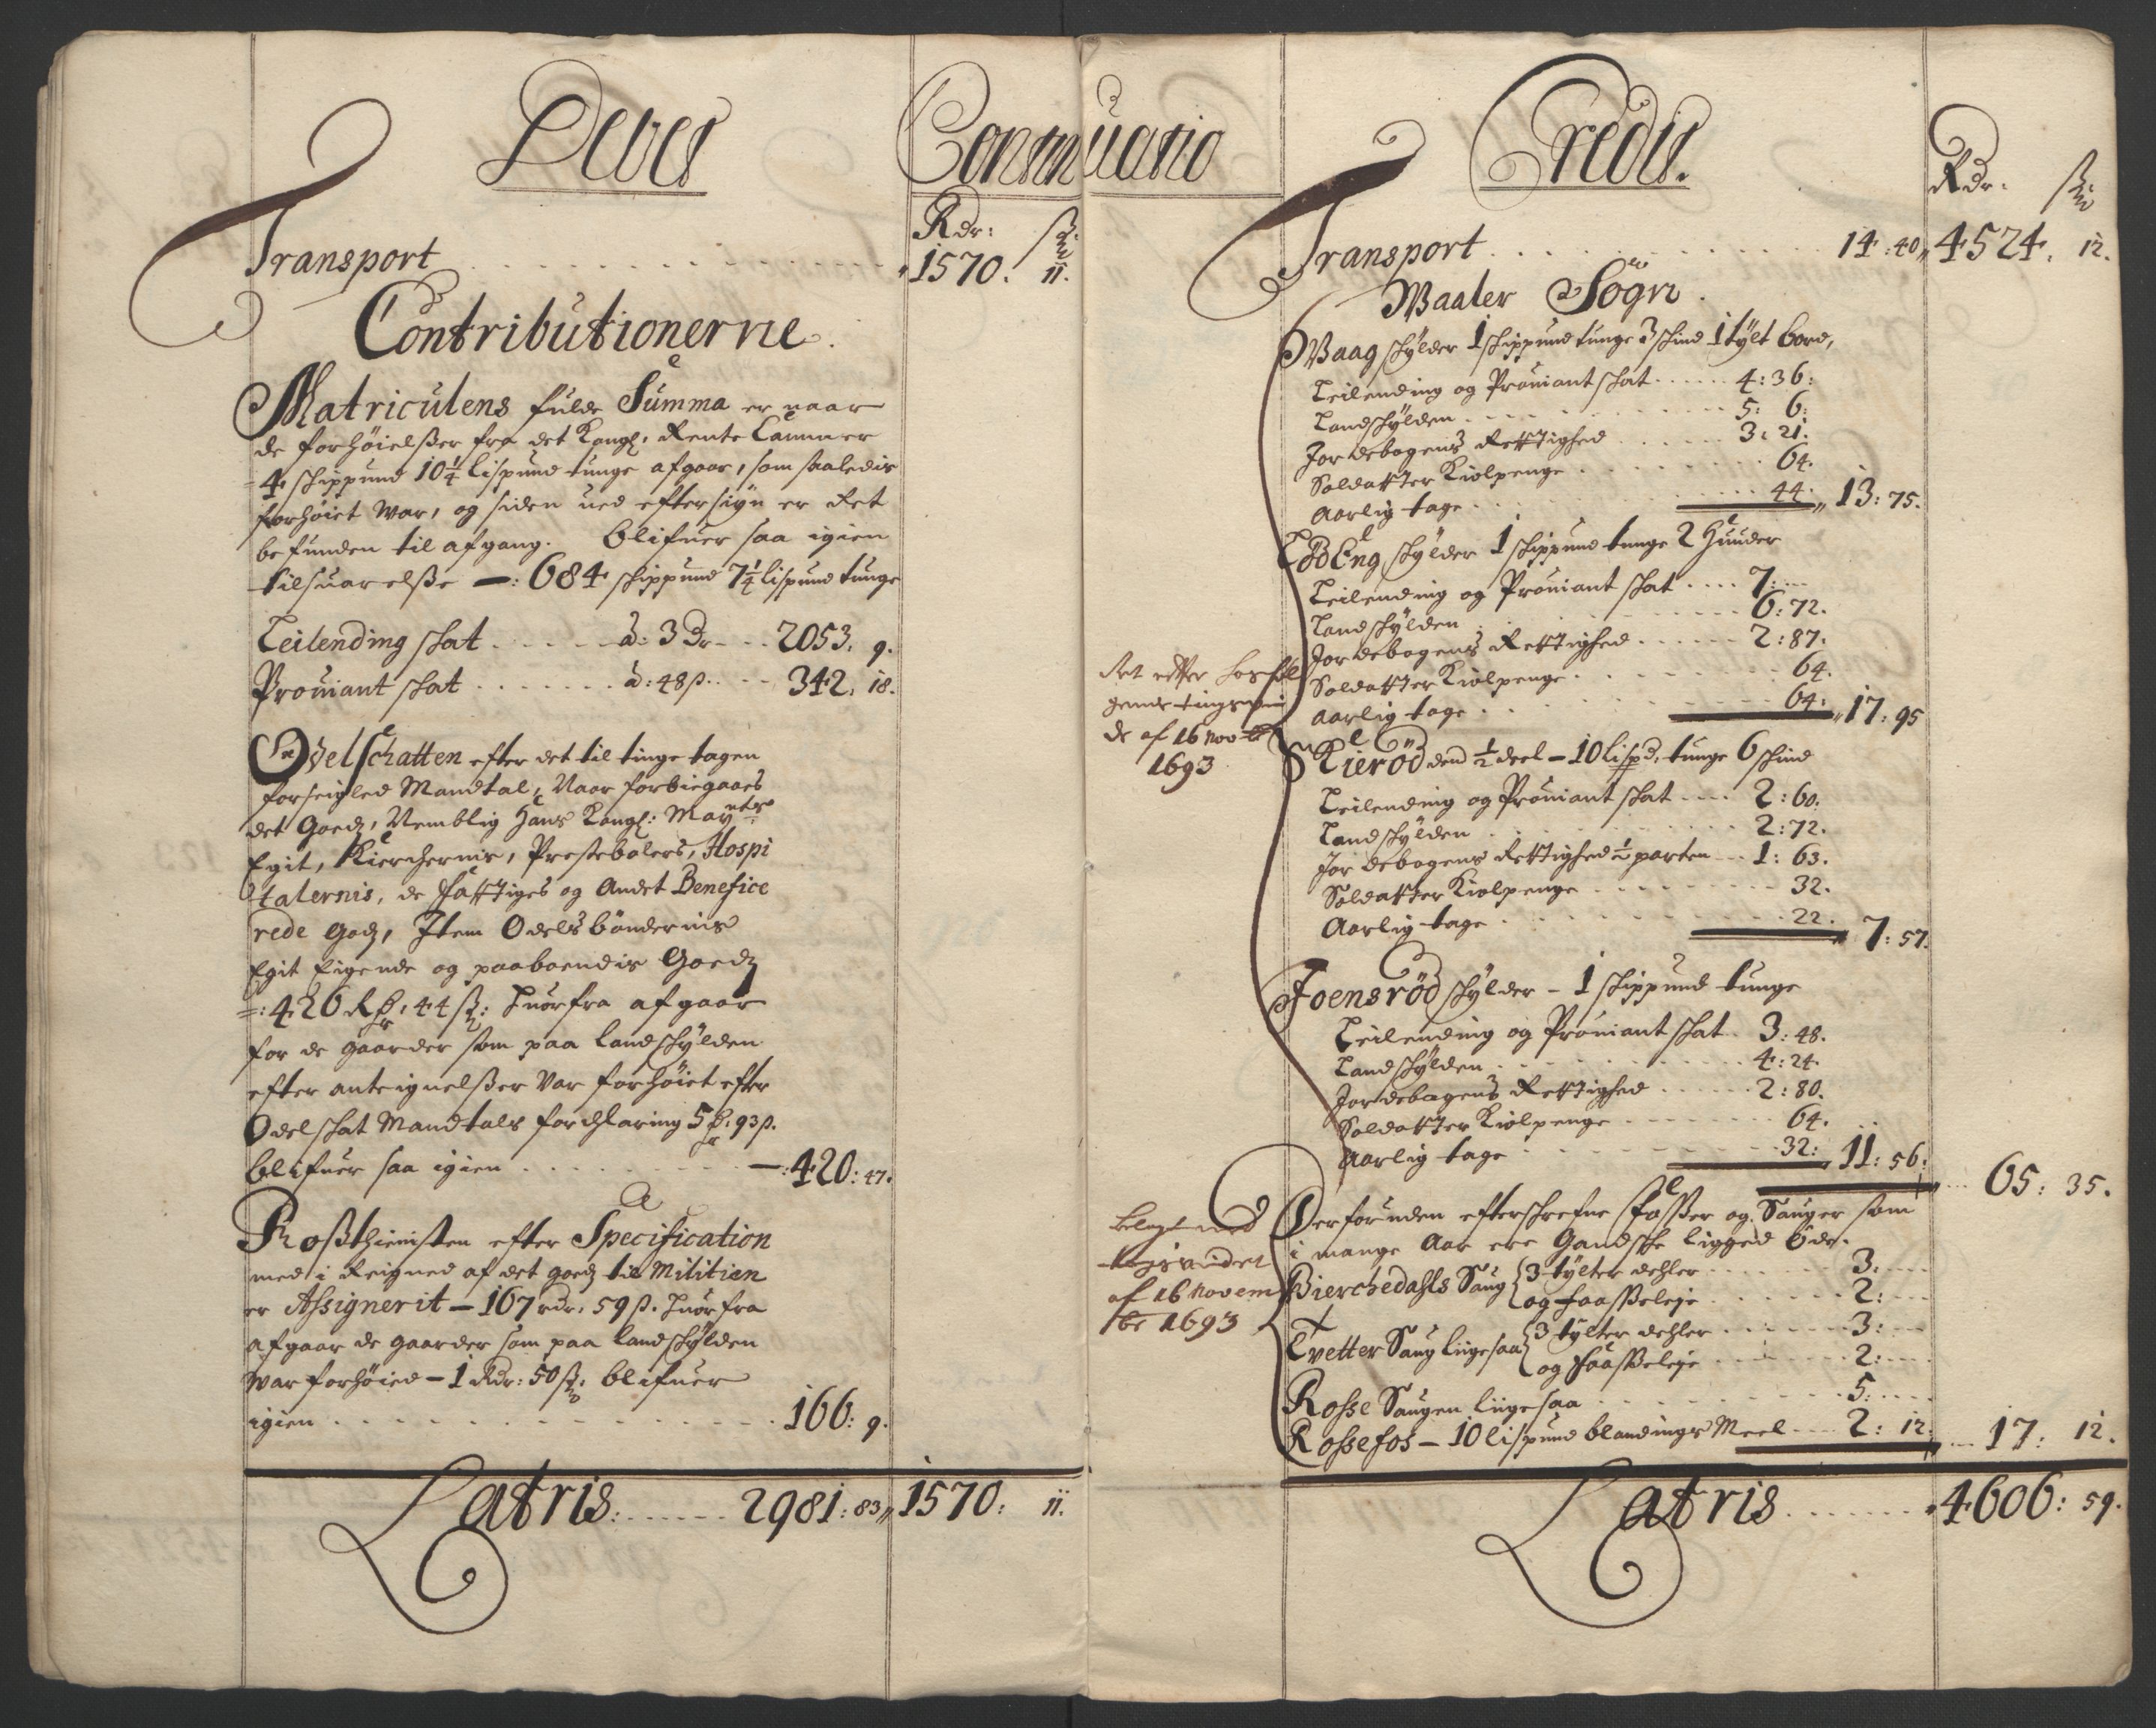 Debet Continuatio
Rdr: ß
Transport 1570. 11.
Contributionerne.
Matriculens fulde Summa er naar
de forhøielßer fra det Kongl. Rente Cammer
4 schippund 10 1/4 lispund tunge afgaar, som saaledis
forhøiet war, og siden ued eftersiyn er Ret
befunden til afgang. blifuer saa igien
tilsuarelße —: 684 schippund 7 1/4 lispund tunge
Leilending schat à: 3 Dr 2053. 9.
Prouiant schat à: 48 ß. 342. 18.
Odelschatten efter det til tinge tagen
forseigled Mandtal, Naar forbiegaaes
det Goedz, Nemblig Hans Kongl: Mayts
Egit, Kierchernis, Prestebolers, Hospi
talernis, de Fattiges og Andet Benefice
rede Godz, Item Odelsbøndernis
Egit Eigende og paaboendis Goedz
=: 426 Rdr: 44 ß: huorfra afgaar
for de gaarder som paa landschylden
efter anteignelßer var forhøiet efter
Odelschat Mandtals forcklaring 5 dr: 93 ß.
blifuer saa igien —: 420: 47.
Roßthienisten efter Specification
med i Reigned af det goedz til Militien
er Assignerit — 167 rdr. 59 ß. huorfra
afgaar de gaarder som paa landschylden
war forhøied — 1 Rdr: 50 ß: blifuer
igien 166: 9.
Latris: 2981: 83 1570: 11.
Credit.
Rdr: ß
Transport 14: 40 4524. 12.
Waaler Sögn.
Waag schylder 1 schippund tunge 3 schind 1 tylt bord,
Leilending og Prouiant schat 4: 36:
Landschylden 5: 6:
Jordebogens Rettighed 3: 21.
Soldatter Kiolpenge 64.
Aarlig tage 44. 13: 75.
Eng schylder 1 schippund tunge 2 Huuder
Leilending og Prouiant schat 7:
Landschylden 6: 72.
Jordebogens Rettighed 2: 87.
Soldatter Kiolpenge 64.
Aarlig tage 64. 17: 95
det efter
de af 16 Nov
1693
Kieröd den 1/2 deel — 10 lispd. tunge 6 schind
Leilending og Prouiant schat 2: 60.
Landschylden 2: 72.
Jordebogens Rettighed 1/2 parten 1: 63.
Soldatter Kiolpenge 32.
Aarlig tage 22. 7: 57.
Joensröd schylder — 1 schippund tunge
Leilending og Prouiant schat 3: 48.
Landschylden 4: 24.
Jordebogens Rettighed 2: 80.
Soldatter Kiolpenge 64.
Aarlig tage 32: 11: 56: 65: 35.
Derforuden efterschrefne Foßer og Sauger som
i mange Aar ere Gandsche ligged öde.
af 16 Novem
be 1693
Bierchedahls Saug 3 tylter dehler 3:
og Faaßeleje 2:
Tvetter Saug liigesaa 3 tylter dehler 3:
og Faaßeleje 2:
Rosse Saugen liigesaa 5:
Rossefos — 10 lispund blandings Meel 2: 12: 17: 12.
Latris 4606: 59.